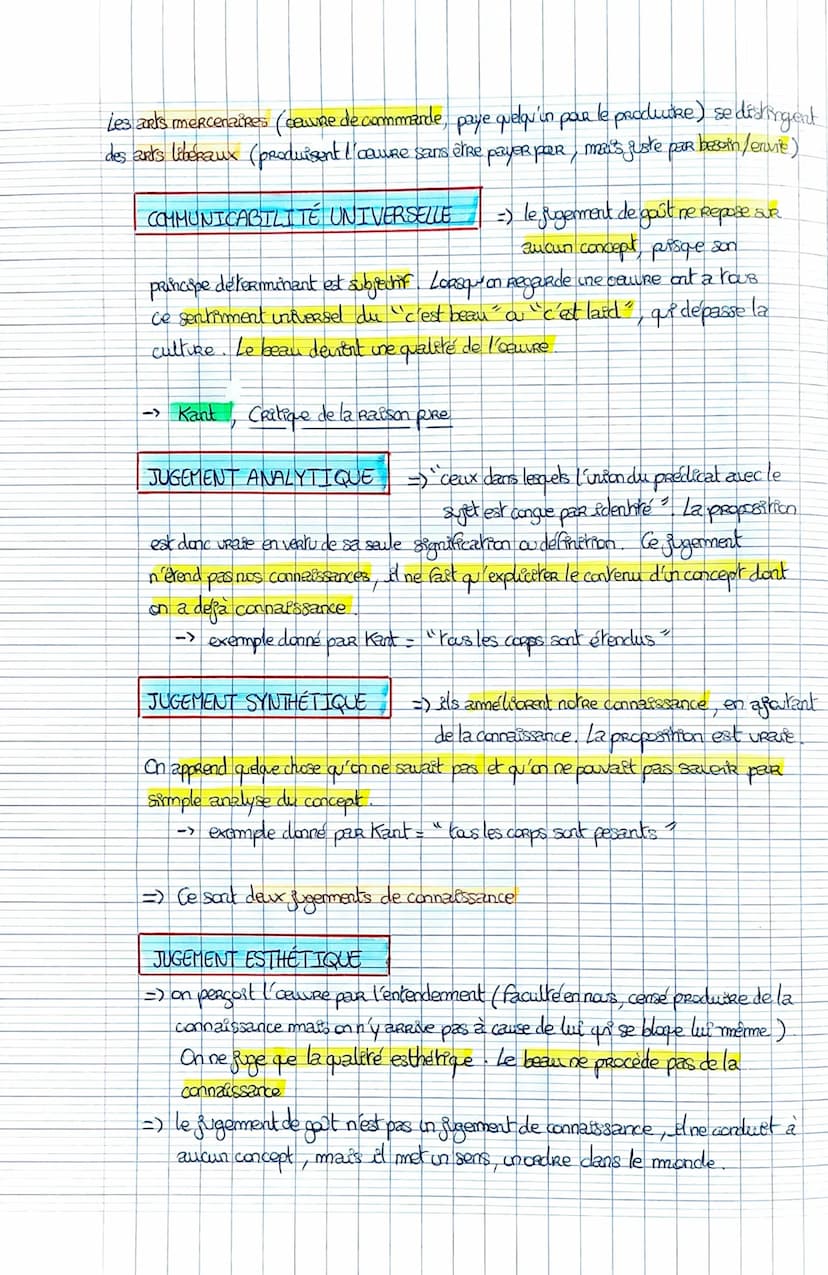 Les arts mercenaires (œuvre de commande, paye quelqu'un pour le produire) se distingent
des arts libéraux (produisent l'œuvre sans être payer pour, mais juste par besoin/envie)
COMMUNICABILITÉ UNIVERSELLE => le jugement de goût ne repose sur
aucun concept, puisque son
principe déterminant est subjectif. Lorsqu'on regarde une œuvre ont a tous
ce sentiment universel du "c'est beau" ou "c'est laid", qui dépasse la
culture. Le beau devient une qualité de l'œuvre.
-> Kant, Critique de la Raison pure
JUGEMENT ANALYTIQUE => "ceux dans lesquels l'union du prédicat avec le
sujet est conçue par identité". La proposition
est donc vraie en vertu de sa seule signification ou définition. Ce jugement
n'étend pas nos connaissances, il ne fait qu'expliciter le contenu d'un concept dont
on a déjà connaissance.
-> exemple donné par Kant = "tous les corps sont étendus"
JUGEMENT SYNTHÉTIQUE => ils amméliorent notre connaissance, en ajoutant
de la connaissance. La proposition est vraie.
On apprend quelque chose qu'on ne savait pas et qu'on ne pouvait pas savoir par
simple analyse du concept.
-> exemple donné par Kant = "tous les corps sont pesants"
=> Ce sont deux jugements de connaissance
JUGEMENT ESTHÉTIQUE
=> on perçoit l'œuvre par l'entendement (faculté en nous, censé produire de la
connaissance mais on n'y arrive pas à cause de lui qui se bloque lui même)
On ne juge que la qualité esthétique. Le beau ne procède pas de la
connaissance
=> le jugement de goût n'est pas un jugement de connaissance, il ne conduit à
aucun concept, mais il met un sens, un ordre dans le monde.